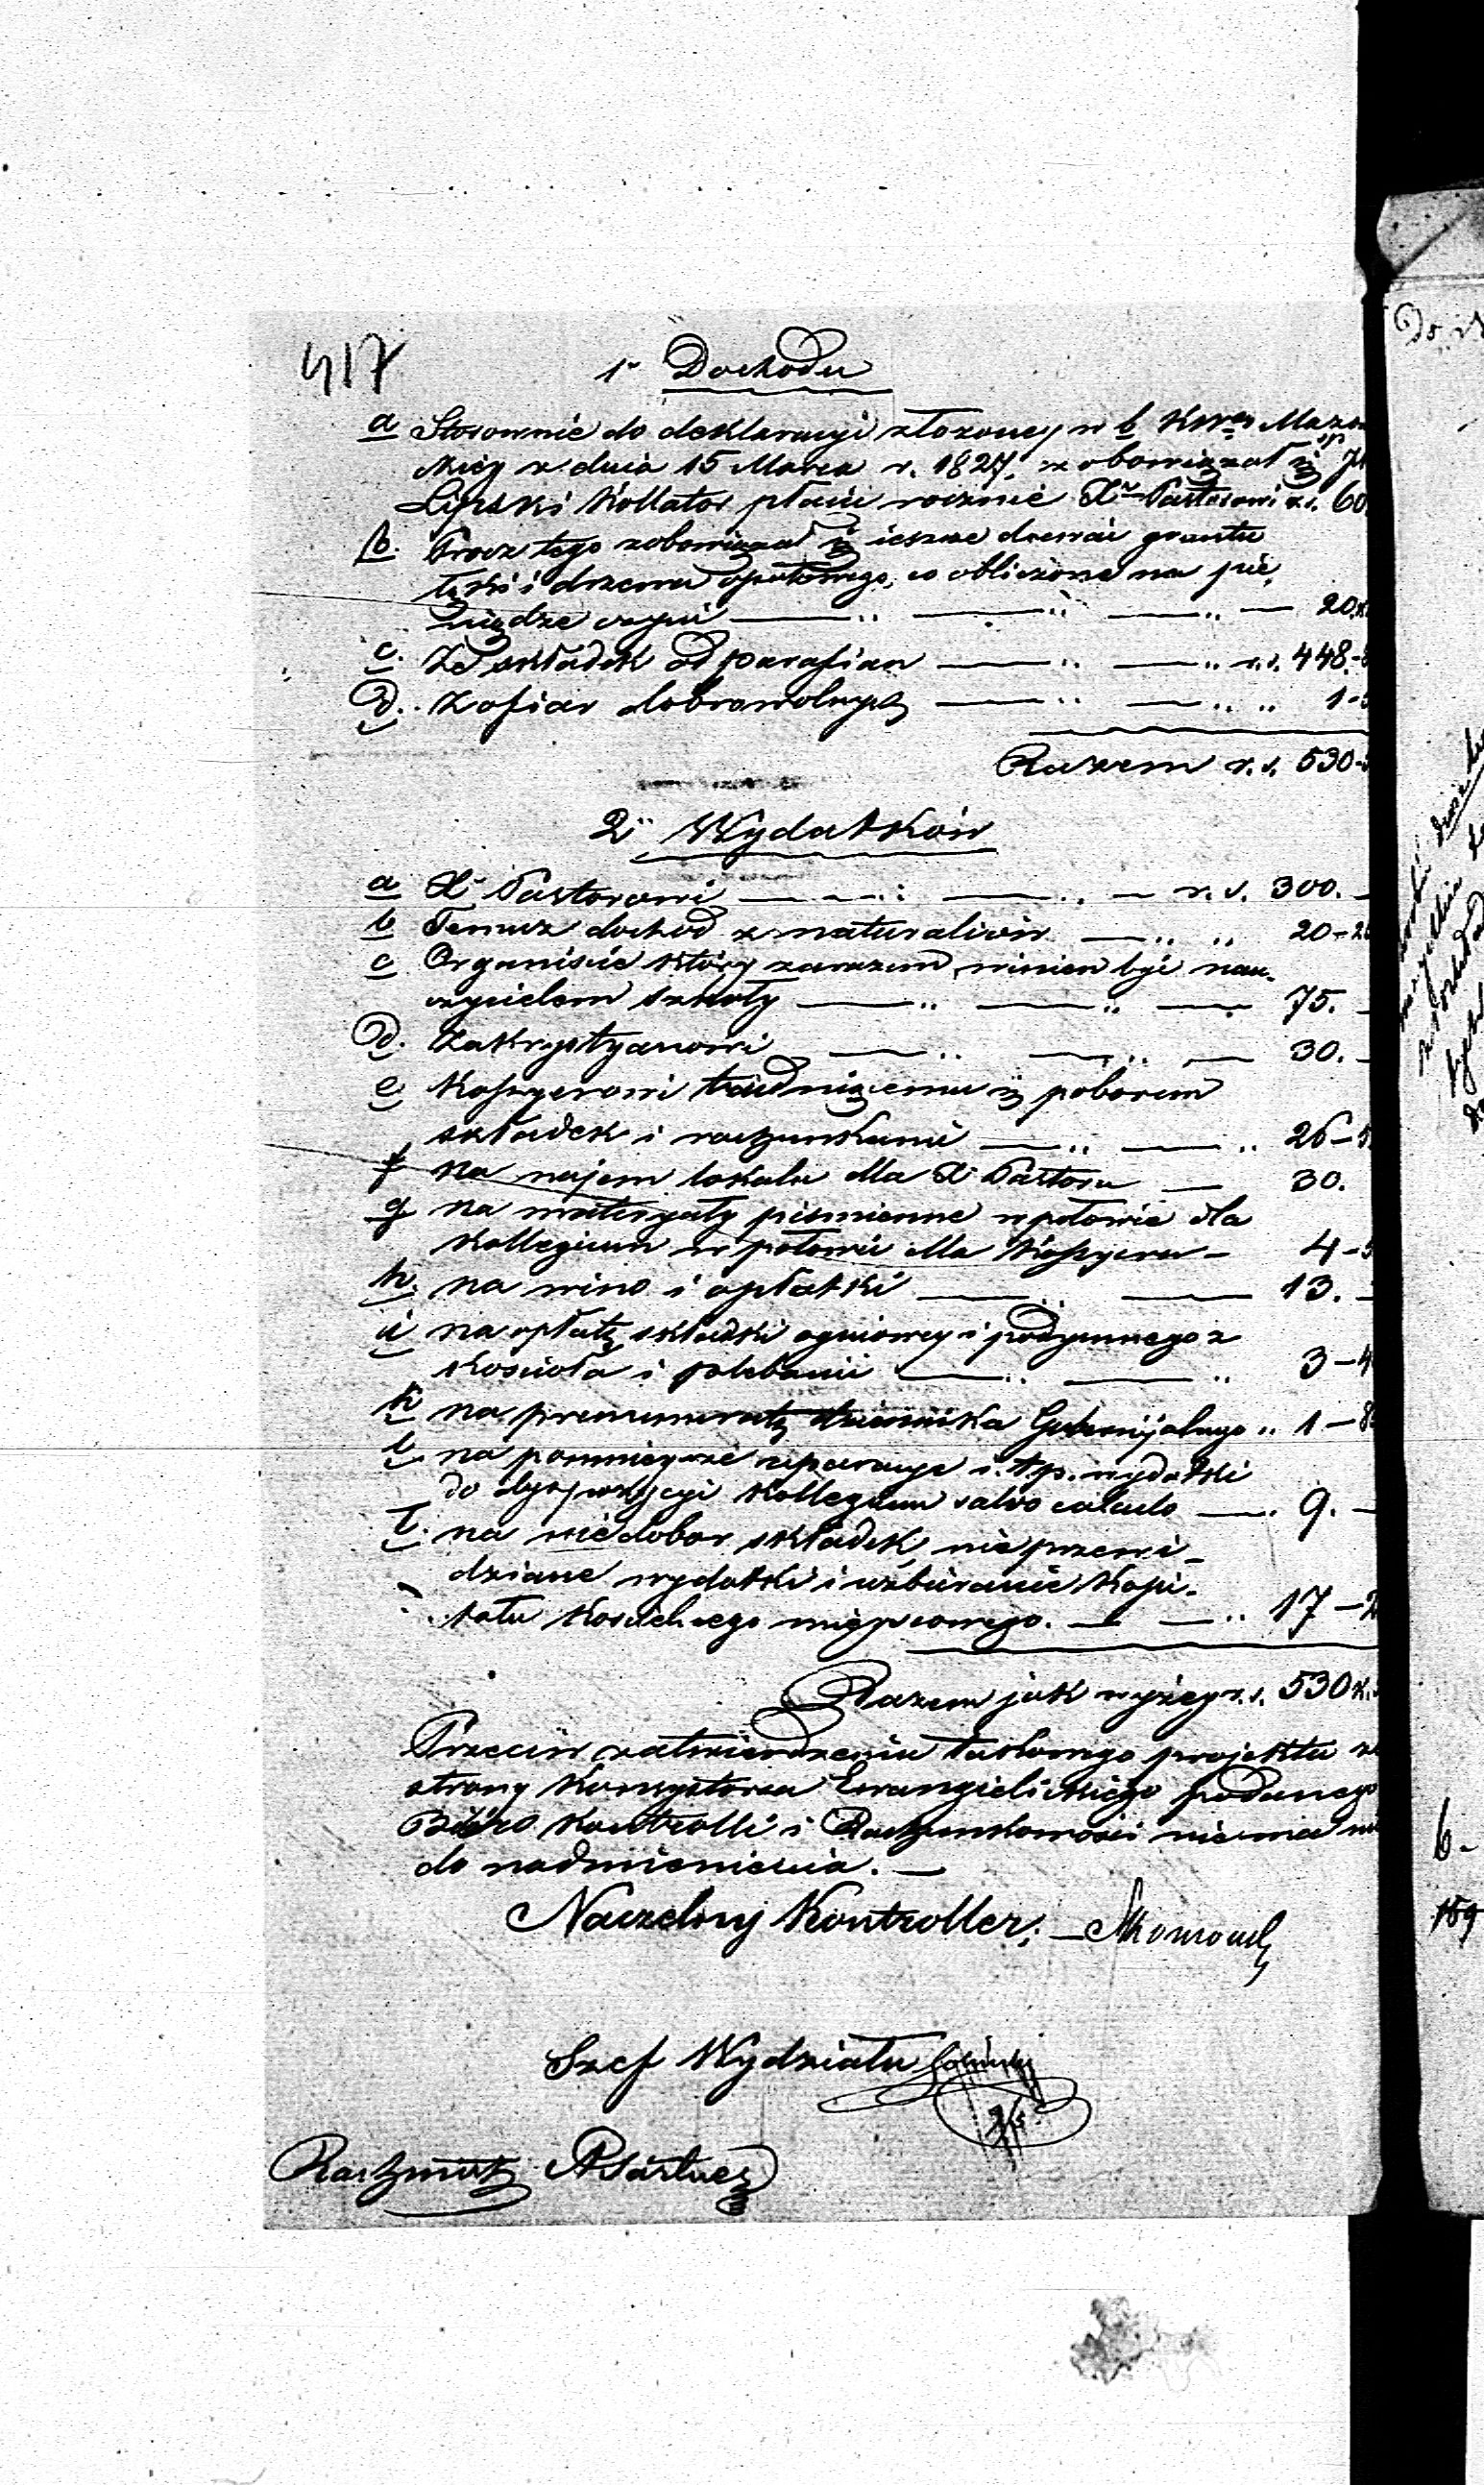 417
1º Dochodu
a Stosownie do deklaracyi złożoney w b. Kom. Mazo
wiey z dnia 15 Marca r. 1827. zobowiązał się JP
Lipski Kollator płacić rocznie X. Pastorowi r.s. 60
b. Procz tego zobowiązał się ieszcze dawać gruntu
łąki i drzewa opałowego, co obliczone na pie,
niądze czyni — .. — .. — .. — 20
c. Ze składek od parafian — .. — .. r.s. 448.
d. Z ofiar dobrowolnych — .. — .. .. 1-
Razem r.s. 530-
2º Wydatków
a X. Pastorowi — .. — .. — r.s. 300. —
b Temuż dochod z naturaliów — .. .. 20-2
c Organiście który zarazem winien być nau-
czycielem szkoły — .. — .. — 75. —
d. Zakrystyanowi — .. — .. — 30. —
e Kassyerowi trudniącemu się poborem
składek i rachunkami — .. — .. 26-
f na najem lokalu dla X Pastora — 30.
g na materyały piśmienne w połowie dla
Kollegium w połowie dla Kassyera — 4-
h. na wino i opłatki — .. — 13. —
i na opłatę składki ogniowey i podymnego z
Kościoła i plebanii — .. — .. 3-4
k na prenumeratę dziennika Gubernijalnego .. 1-8
l. na pomnieysze reparacye i t.p. wydatki
do dyspozycyi Kollegium salvo calculo — . 9. —
ł. na niedobor składek, nieprzewi-
dziane wydatki i uzbieranie Kapi-
tału Kościelnego mieyscowego. — — .. 17-2
Razem jak wyżey r.s. 530 k.
Przeciw zatwierdzeniu takowego projektu ze
strony Konsystorza Ewangielickiego podanego
Biuro Kontrolli i Rachunkowości niema nic
do nadmienienia. —
Naczelny Kontroller; —
Szef Wydziału
Rachmistrz
Do
6-
159